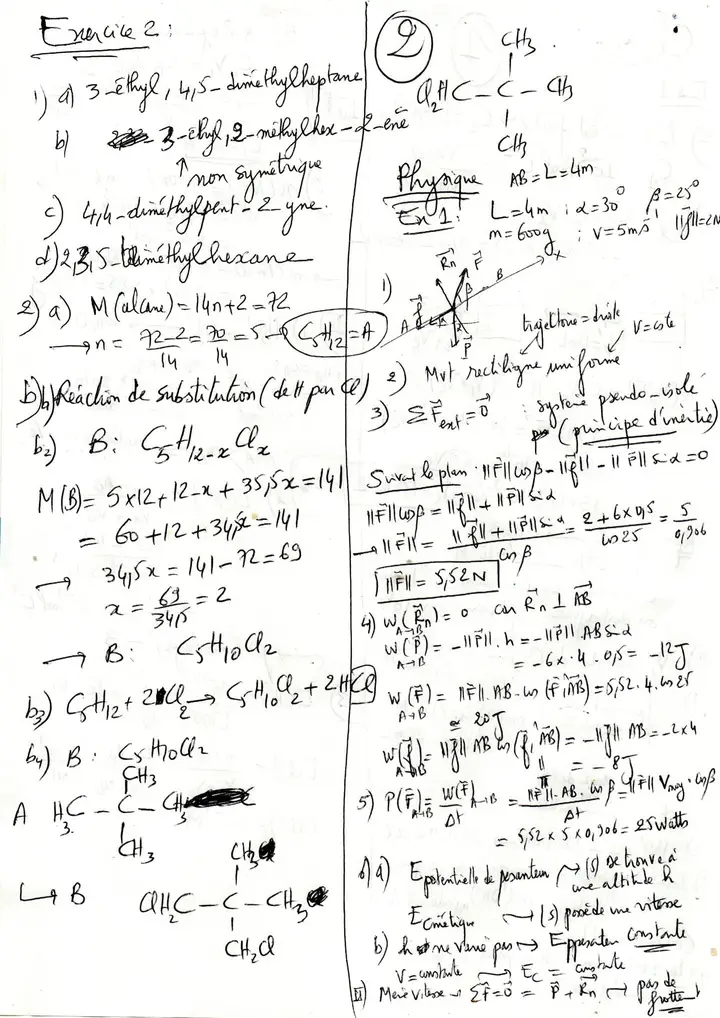 Exercice 2 :
1) a) 3-éthyl, 4,5-diméthylheptane
b) 3-éthyl, 2-méthylhex-2-ene
↑ non symétrique
c) 4,4-diméthylpent-2-yne.
d) 2,3,5-triméthylhexane
2) a) M(alcane) = 14n+2 = 72
→ n = 72-2/14 = 70/14 = 5 → C5H12 = A
b) b1) Réaction de substitution (de H par Cl)
b2) B : C5H12-xClx
M(B) = 5x12+12-x+35,5x = 141
= 60+12+34,5x = 141
→ 34,5x = 141-72 = 69
x = 69/34,5 = 2
→ B : C5H10Cl2
b3) C5H12 + 2Cl2 → C5H10Cl2 + 2HCl
b4) B : C5H10Cl2
CH3
A H3C - C - CH3
CH3
CH3
↳ B ClH2C - C - CH3
CH2Cl
2
CH3
Cl2HC - C - CH3
CH3
Physique AB = L = 4m
Ex 1 : L = 4m ; α = 30° β = 25°
m = 600g ; V = 5ms-1 ||f|| = 2N
1) Rn F
β B x
A f α
P
trajectoire = droite V = cste
2) Mvt rectiligne uniforme
3) ΣFext = 0 : système pseudo-isolé
(principe d'inertie)
Suivant le plan : ||F||cosβ - ||f|| - ||P|| sinα = 0
||F||cosβ = ||f|| + ||P|| sinα
→ ||F|| = ||f|| + ||P|| sinα / cosβ = 2+6x0,5 / cos25 = 5/0,906
||F|| = 5,52N
4) W(Rn) A→B = 0 car Rn ⊥ AB
W(P) A→B = -||P||.h = -||P||.AB sinα
= -6x.4.0,5 = -12J
W(F) A→B = ||F||.AB.cos(F,AB) = 5,52.4.cos25
≃ 20J
W(f) A→B = ||f|| AB cos(f,AB) = -||f|| AB = -2x4
π = -8J
5) P(F) A→B = W(F) A→B / Δt = ||F||.AB.cosβ / Δt = ||F|| Vmoy.cosβ
= 5,52 x 5 x 0,906 = 25 Watts
6) a) Epotentielle de pesanteur → (S) se trouve à
une altitude h
Ecinétique → (S) possède une vitesse
b) h ne varie pas → Eppesanteur constante
V = constante → Ec = constante
II) Même vitesse → ΣF = 0 = P + Rn → pas de
frottement